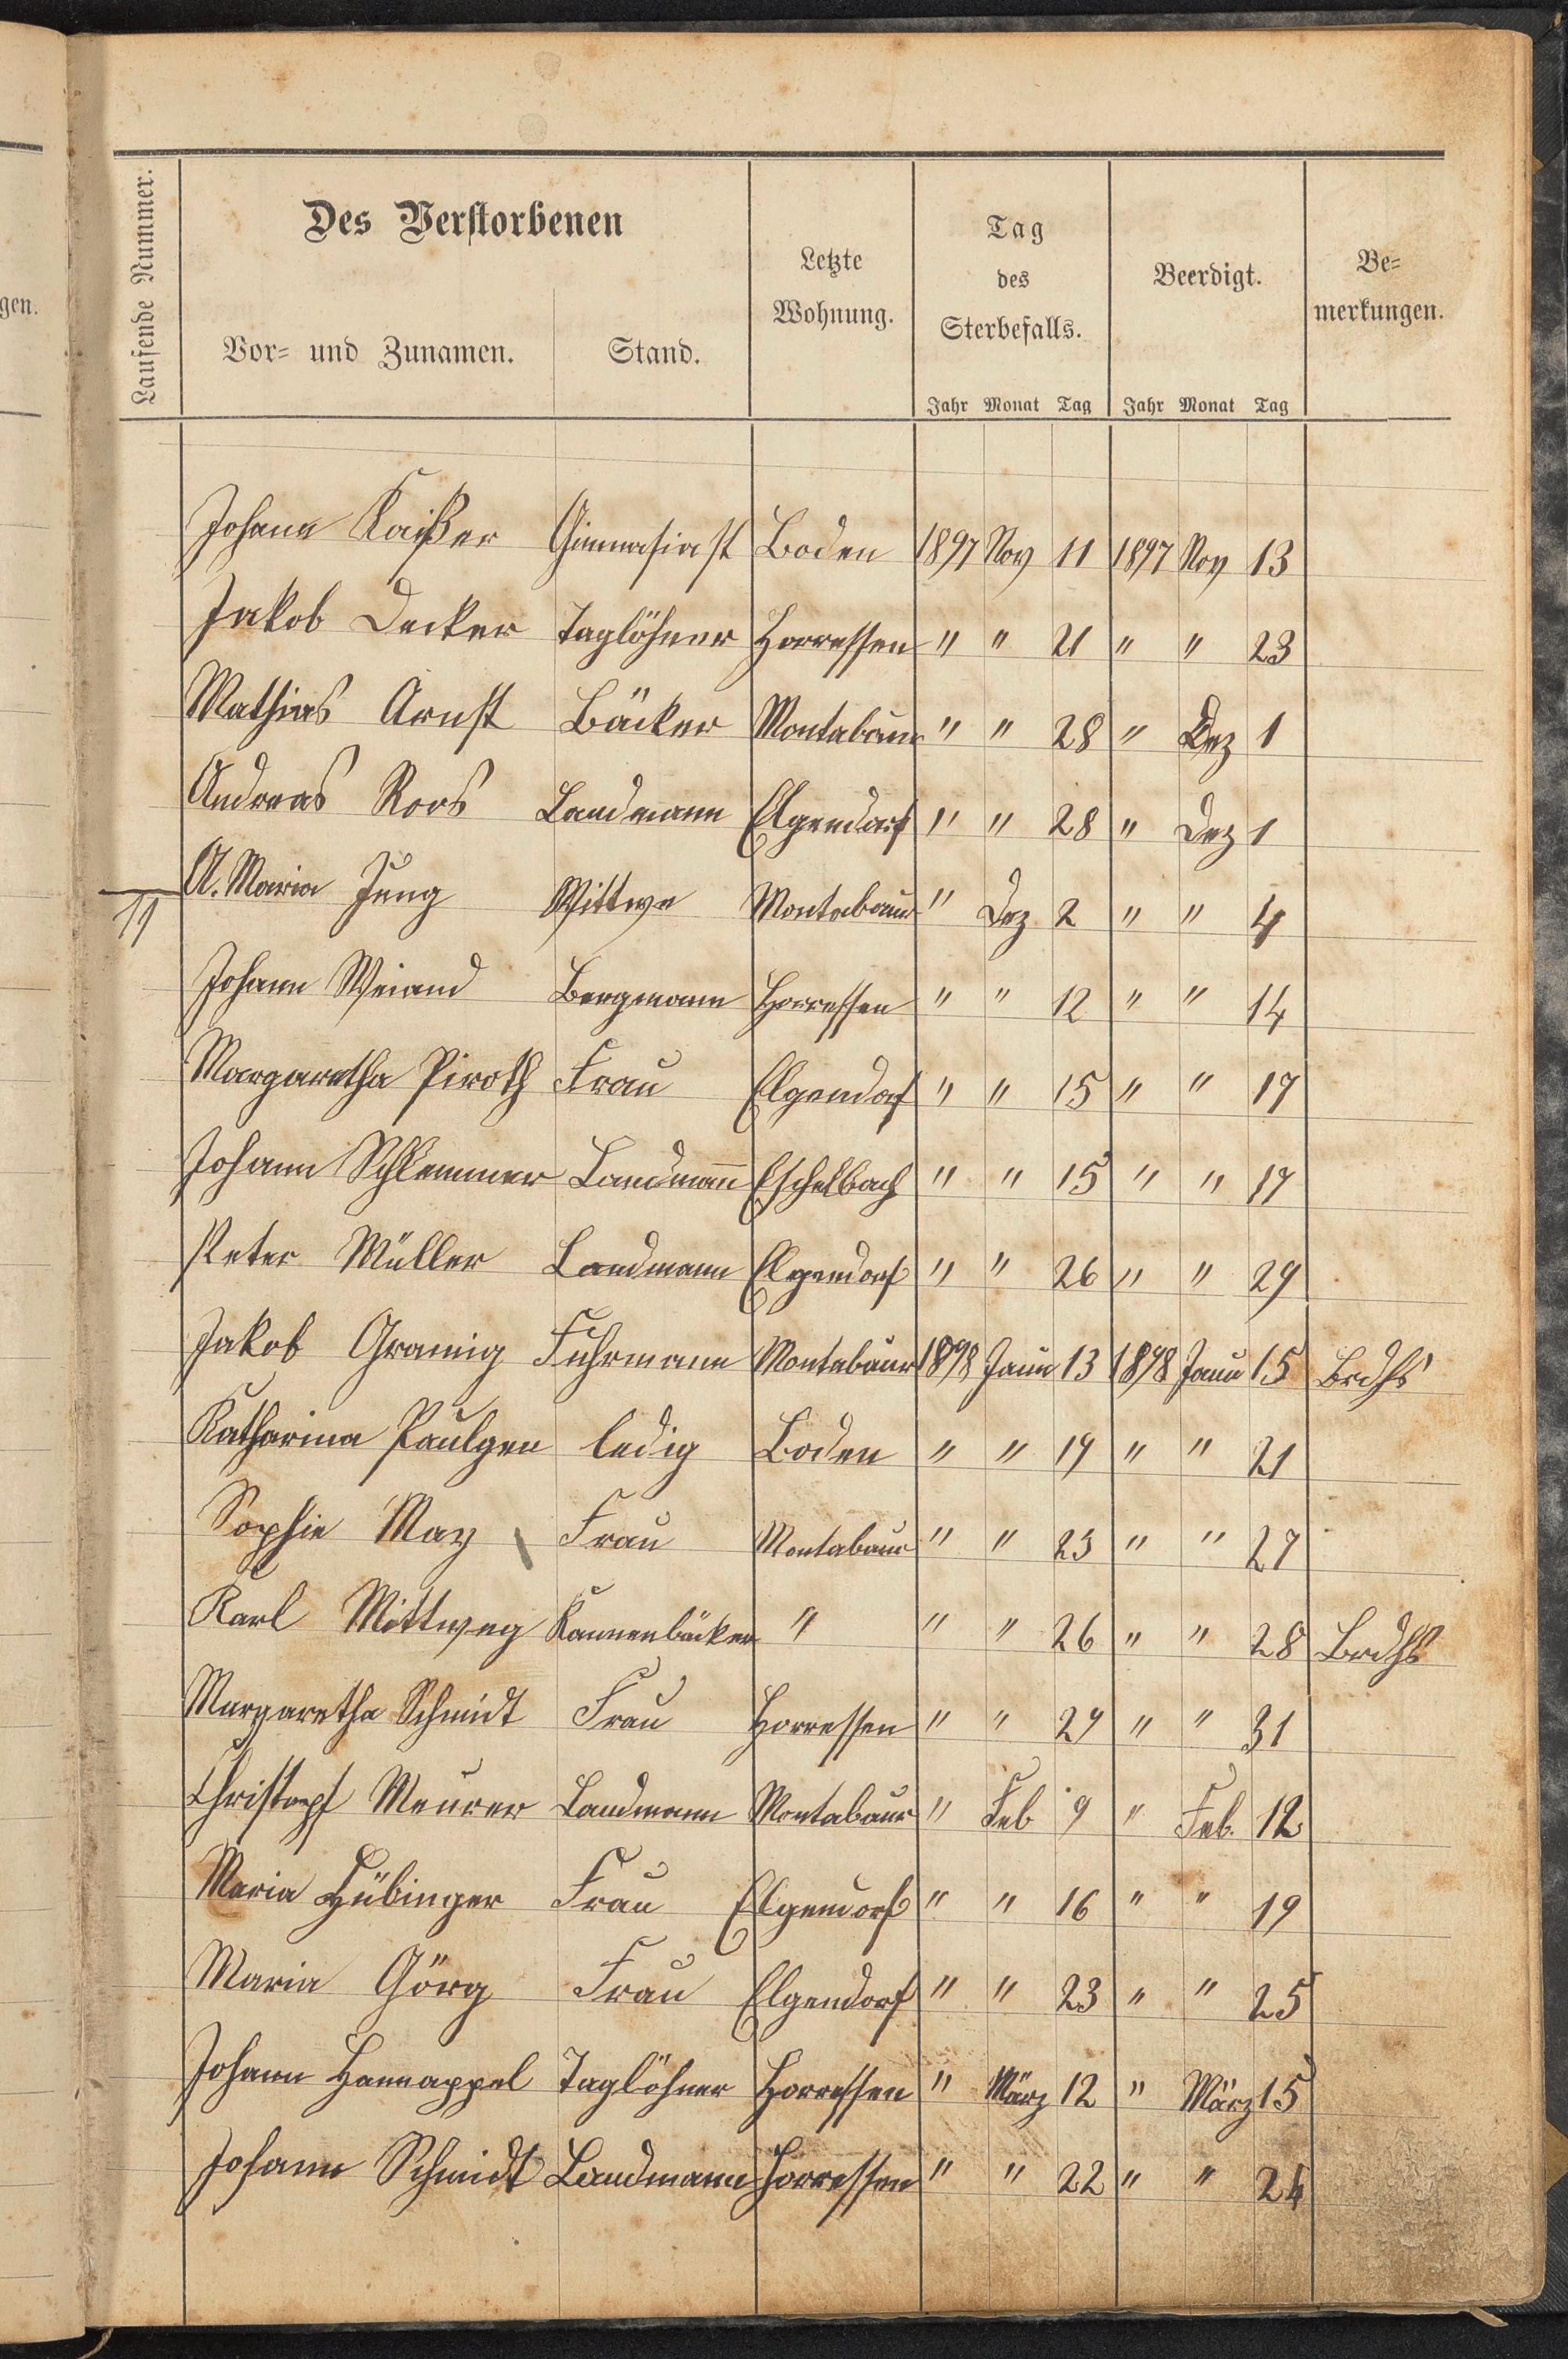 gen.
Laufende Nummer.
Des Verstorbenen
Vor- und Zunamen. Stand.
Letzte
Wohnung.
Tag
des
Sterbefalls.
Beerdigt.
Be-
merkungen.
Jahr Monat Tag Jahr Monat Tag
Johann Kaißer Gimnasiast Boden 1897 Nov 11 1897 Nov 13
Jakob Decker Taglöhner Horressen " " 21 " " 23
Mathias Arnst Bäcker Montabaur " " 28 " Dez 1
Andreas Roos Landmann Elgendorf " " 28 " Dez 1
11 A. Maria Jung Wittwe Montabaur " Dez 2 " " 4
Johann Weiand Bergmann Horressen " " 12 " " 14
Margaretha Piroth Frau Elgendorf " " 15 " " 17
Johann Schlemmer Landmann Eschelbach " " 15 " " 17
Peter Müller Landmann Elgendorf " " 26 " " 29
Jakob Gramig Fuhrmann Montabaur 1898 Janu 13 1898 Janu 15 Brdhs
Katharina Paulgen ledig Boden " " 19 " " 21
Sophie May Frau Montabaur " " 25 " " 27
Karl Mittweg Kannenbäcker " " " 26 " " 28 Brdhs
Margaretha Schmidt Frau Horressen " " 29 " " 31
Christoph Meurer Landmann Montabaur " Feb 9 " Feb. 12
Maria Hübinger Frau Elgendorf " " 16 " " 19
Maria Görg Frau Elgendorf " " 23 " " 25
Johann Hannappel Taglöhner Horressen " März 12 " März 15
Johann Schmidt Landmann Horressen " " 22 " " 24